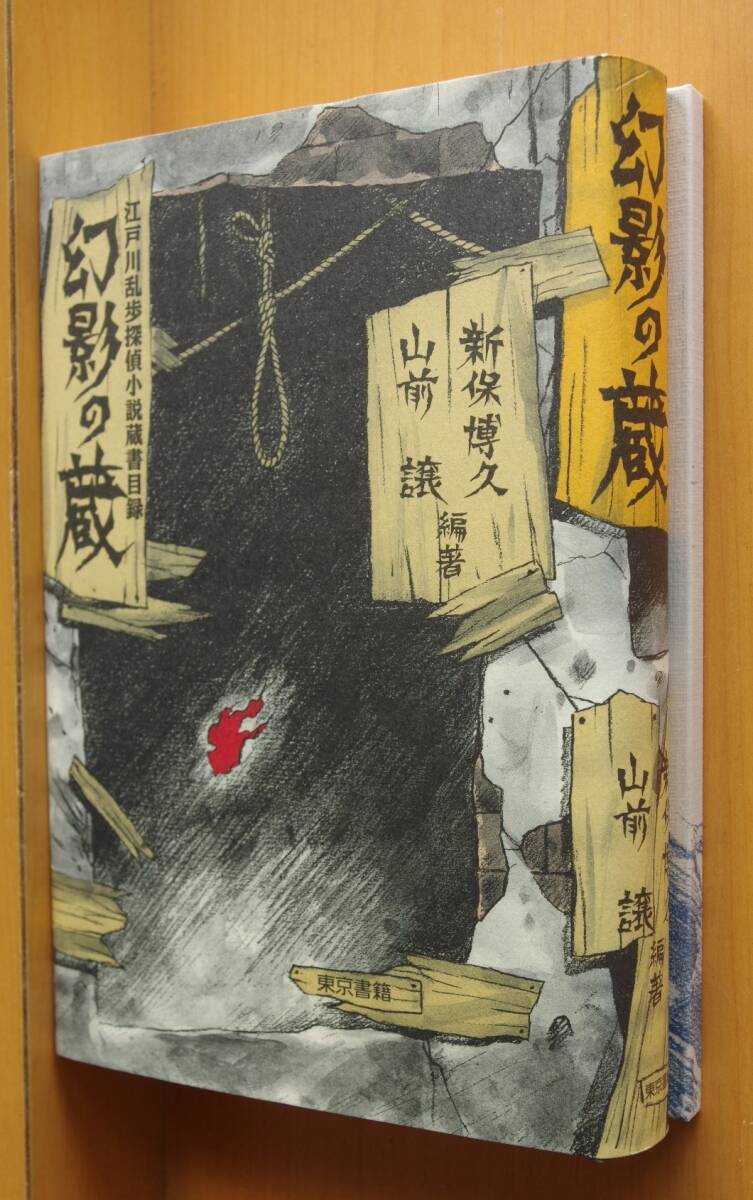 幻影の蔵
江戸川乱歩探偵小説蔵書目録
新保博久
山前 譲
編著
東京書籍
幻影の蔵
山前 譲
編著
東京